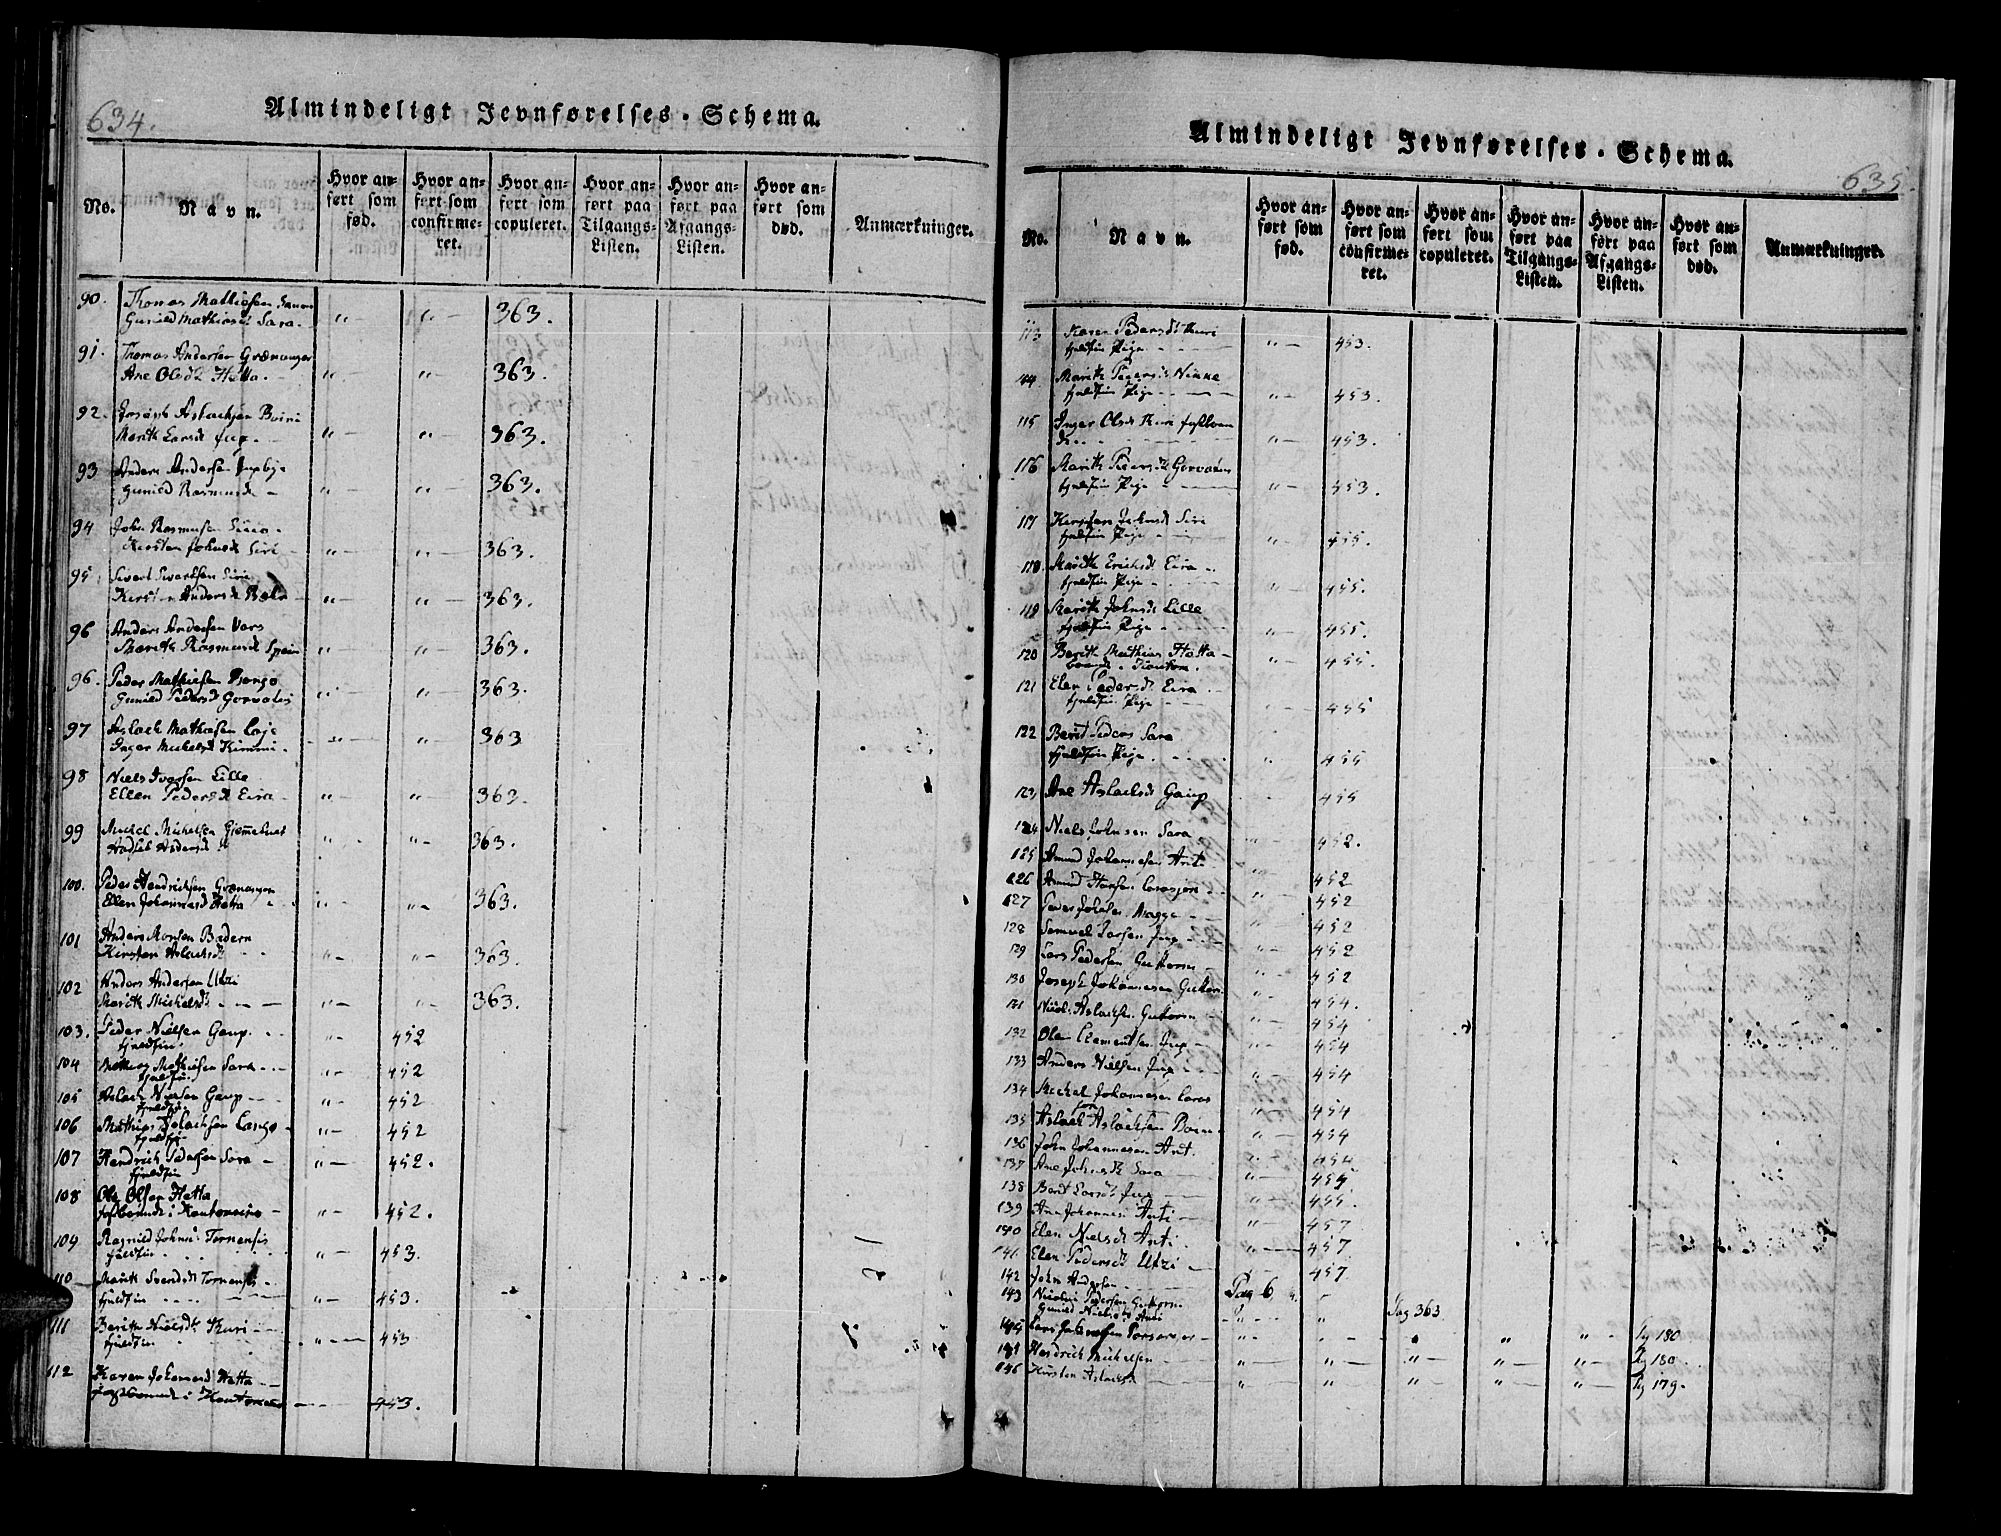 634.
Almindeligt Jevnførelses-Schema.
No.
Navn.
Hvor anført som fød.
Hvor anført som confirmeret.
Hvor anført som copuleret.
Hvor anført paa Tilgangs-Listen.
Hvor anført paa Afgangs-Listen.
Hvor anført som død.
Anmærkninger.
90. Thomas Mathiesen
Gunild Mathisd Sara. " — " — 363.
91. Thomas Andersen Grænanger
Ane Olsd Hætta. " — " — 363.
92. Aslachsen
Marith Larsd Jup. " — " — 363.
93 Anders Andersen
Gunild Rasmusd — " — " — 363.
94 John Rasmusen
Kirsten Johnsd Siri " — " — 363.
95 Sivert Sivertsen Siri
Kirsten Andersd " — " — 363.
96 Anders Andersen Vars
Marith Rasmusd Spein " — " — 363.
96. Peder Mathiesen Pongo
Gunild Pedersd Gorvatis " — " — 363.
97 Aslach Mathiesen
Inger Michelsd Kimmi. " — " — 363
98 Niels Iversen Lille
Ellen Pedersd Eira " — " — 363.
99 Michel Michelsen
Andersd " " 363.
100. Peder Hendrichsen Grænanger
Ellen Johannesd Hætta " " — 363.
101 Anders Monsen Badern
Kirsten Aslachsd " — " — 363.
102 Anders Andersen Utzi
Marith Michelsd — " — " — 363.
103. Peder Nielsen Gaup.
fjeldfin. " — 452
104 Mathias Mathiesen Sara
fjeldfin. " — 452
105 Aslach Nielsen Gaup
fjeldfin. " — 452
106 Mathias Aslachsen Lango
fjeldfin " — 452
107 Hendrich Pedersen Sara —
fjeldfin " — 452.
108 Ole Olsen Hætta
i Koutoceino — " — 452.
109 Ragnild Johnsd Tornensis
fjeldfin " — 453.
110 Marith Svendsd Tornensis
fjeldfin " — 453.
111 Berith Nielsd Kuri
fjeldfin " — 453
112 Karen Johannesd Hætta
i Koutoceino — 453.
Almindeligt Jevnførelses-Schema.
635.
No.
Navn.
Hvor anført som fød.
Hvor anført som confirmeret.
Hvor anført som copuleret.
Hvor anført paa Tilgangs-Listen.
Hvor anført paa Afgangs-Listen.
Hvor anført som død.
Anmærkninger.
113 Karen Pedersd Kuri
fjeldfin Pige " — 453.
Marith Pedersd
fjeldfin Pige " — 453.
115 Inger Olsd Kuri
" — 453.
116 Marith Pedersd Gorvatis
fjeldfin Pige " — 453.
117 Kirsten Johnsd Siri
fjeldfin Pige " — 455.
118. Marith Erichsd Eira
fjeldfin Pige " — 455.
119 Marith Johnsd Lille
fjeldfin Pige " — 455.
120 Berith Mathisd Hætta
" — 455.
121 Elen Pedersd Eira
fjeldfin Pige 455
122 Berit Pedersd Sara
fjeldfin Pige " 455
123 Ane Aslachsd Gaup — 455
124 Niels Johnsen Sara " — 452.
125 Amund Johannesen Anti " — 452
126 Amund Hansen Carasjok " — 452
127 Peder Johnsen Magga " — 452
128 Samuel Larsen Jup " — 452
129 Lars Pedersen Guttorm " — 452
130 Joseph Johannesen Guttorm. " — 454.
131 Niels Aslachsen Guttorm " — 454
132 Ole Clementsen Jup " — 454
133 Anders Nielsen Jup " — 454
134 Michel Johannesen Caras jok " — 454
135 Aslach Aslachsen " — 454
136 John Johannesen Anti. " — 454
137 Ane Johnsd Sara " — 455
138 Berit Larsd Jup " — 455.
139 Ane Johannesd Anti " — 457
140 Elen Nielsd Anti " — 457
141 Elen Pedersd Utzi — 457
142 John Andersen Pag 6
143 Nicolai Pedersen Guttorm
Gunild Nielsd Anti " — " Pag 363
Lars Johnsen " — " " — " Pg 180
Hendrich Michelsen " — " — " — " — " — Pg 180
146 Kirsten Aslachsd " — " — " — " — " — Pg 179.